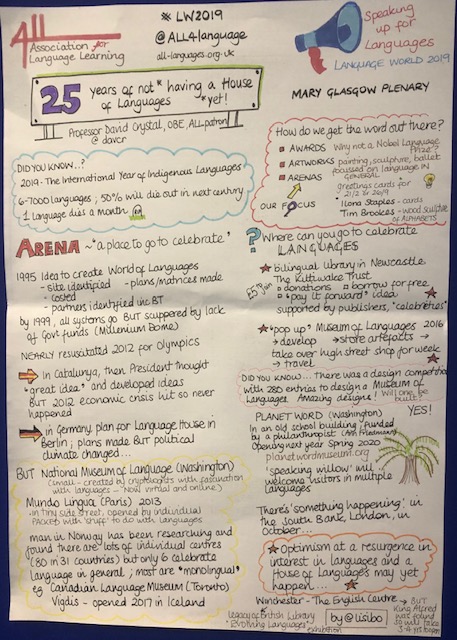 ALL
Association for
Language Learning
# LW2019
@ALL4language
all-languages.org.uk
Speaking
up for
Languages
LANGUAGE WORLD 2019
25 years of not* having a House
of Languages *yet!
Professor David Crystal, OBE, ALL patron
@davcr
MARY GLASGOW PLENARY
DID YOU KNOW..?
2019 - The International Year of Indigenous Languages
6-7000 languages; 50% will die out in next century
1 language dies a month
How do we get the word out there?
AWARDS Why not a Nobel Language Prize?
ARTWORKS painting, sculpture, ballet
focussed on language IN
GENERAL
ARENAS
greetings cards for
21/2 & 26/9
OUR FOCUS
Ilona Staples - cards
Tim Brookes - wood sculpture
of ALPHABETS
ARENA ~ "a place to go to celebrate"
1995 Idea to create World of Languages
- site identified - plans/matrices made
- costed
- partners identified inc BT
by 1999, all systems go BUT scuppered by lack
of Govt funds (Millenium Dome)
NEARLY resuscitated 2012 for Olympics
in Catalunya, then President thought
"great idea" and developed ideas
BUT 2012 economic crisis hit so never
happened
in Germany, plan for Language House in
Berlin; plans made BUT political
climate changed...
BUT National Museum of Language (Washington)
(small - created by cryptologists with fascination
with languages - Now virtual and online)
Mundo Lingua (Paris) 2013
in TINY side street, opened by individual
PACKED with 'stuff' to do with languages
man in Norway has been researching and
found there are lots of individual centres
(80 in 31 countries) but only 6 celebrate
language in general; most are "monolingual"
eg Canadian Language Museum (Toronto)
Vigdis - opened 2017 in Iceland
? Where can you go to celebrate
LANGUAGES
bilingual library in Newcastle
The Kittiwake Trust
£5 to join
donations borrow for free
"pay it forward" idea
supported by publishers, "celebrities"
"pop up" Museum of Languages 2016
→ develop → store artefacts →
take over high street shop for week
→ travel
DID YOU KNOW... There was a design competition
with 280 entries to design a Museum of
Languages. Amazing designs! Will one be
built?
YES!
PLANET WORD (Washington)
In an old school building; funded
by a philanthropist (Ann Friedmann)
Opening next year Spring 2020
planetwordmuseum.org
'speaking willow' will
welcome visitors in multiple
languages
There's 'something happening' in
the South Bank, London, in
October...
Optimism at a resurgence in
interest in languages and a
House of Languages may yet
happen...
Winchester - The English Centre → BUT
King Alfred
was found
so will take
3-4 yrs to open
legacy of British Library
'Evolving Languages' exhibition
by @lisibo